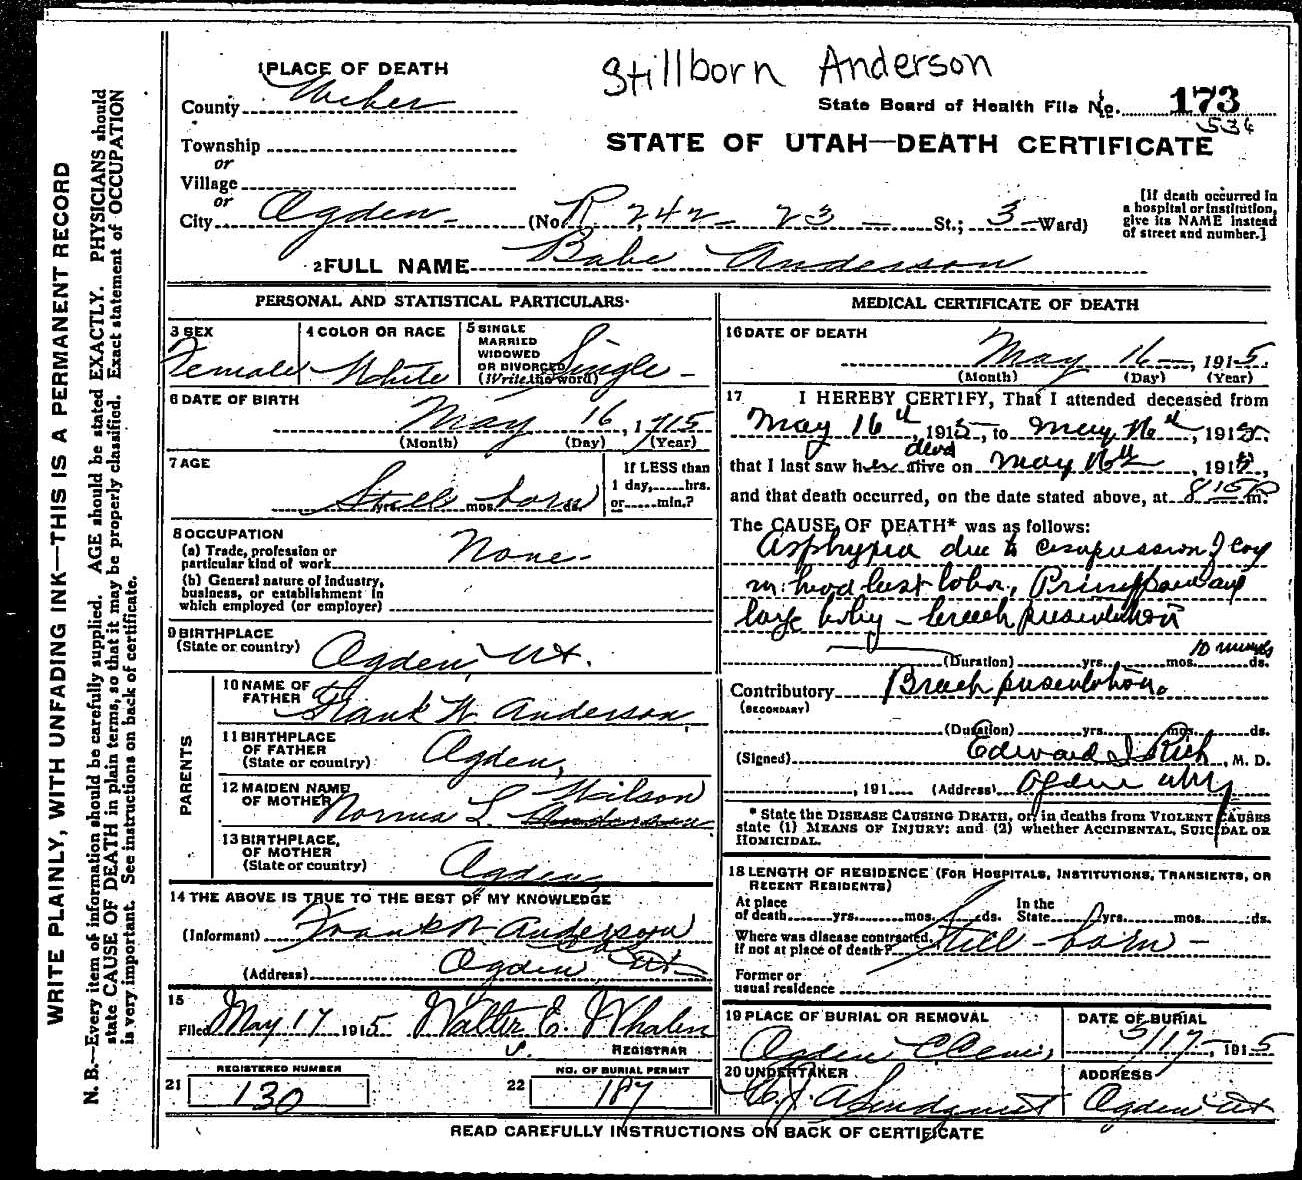 Stillborn Anderson
1 PLACE OF DEATH
County Weber
State Board of Health File No. 173
536
Township
or
Village
or
City Ogden (No. R. 242 - 23 - St.; 3 - Ward)
STATE OF UTAH—DEATH CERTIFICATE
[If death occurred in
a hospital or institution,
give its NAME instead
of street and number.]
2 FULL NAME Babe Anderson
PERSONAL AND STATISTICAL PARTICULARS
3 SEX Female
4 COLOR OR RACE White
5 SINGLE
MARRIED
WIDOWED
OR DIVORCED
(Write the word) Single -
6 DATE OF BIRTH
May 16, 1915
(Month) (Day) (Year)
7 AGE
Still born
yrs. mos. ds.
If LESS than
1 day, hrs.
or min.?
8 OCCUPATION
(a) Trade, profession or
particular kind of work None -
(b) General nature of Industry,
business, or establishment in
which employed (or employer)
9 BIRTHPLACE
(State or country) Ogden, Ut.
PARENTS
10 NAME OF
FATHER Frank W. Anderson
11 BIRTHPLACE
OF FATHER
(State or country) Ogden,
12 MAIDEN NAME
OF MOTHER Norma L Wilson
Anderson
13 BIRTHPLACE,
OF MOTHER
(State or country) Ogden,
14 THE ABOVE IS TRUE TO THE BEST OF MY KNOWLEDGE
(Informant) Frank W Anderson
(Address) Ogden Ut
15
Filed May 17 1915 Walter E. Whalen
REGISTRAR
21 REGISTERED NUMBER
130
22 NO. OF BURIAL PERMIT
187
MEDICAL CERTIFICATE OF DEATH
16 DATE OF DEATH
May 16 —, 1915.
(Month) (Day) (Year)
17 I HEREBY CERTIFY, That I attended deceased from
May 16th, 1915, to May 16th, 1915.
dead
that I last saw her alive on May 16th, 1915,
and that death occurred, on the date stated above, at 8 15 P m.
The CAUSE OF DEATH* was as follows:
Asphyxia due to compression of cord
in hard last labor, Primipara and
large baby - breech presentation
10 minutes
(Duration) yrs. mos. ds.
Contributory Breech presentation.
(SECONDARY)
(Duration) yrs. mos. ds.
(Signed) Edward I Rich, M. D.
, 191 (Address) Ogden Utah
* State the DISEASE CAUSING DEATH, or, in deaths from VIOLENT CAUSES
state (1) MEANS OF INJURY; and (2) whether ACCIDENTAL, SUICIDAL OR
HOMICIDAL.
18 LENGTH OF RESIDENCE (FOR HOSPITALS, INSTITUTIONS, TRANSIENTS, OR
RECENT RESIDENTS)
At place
of death yrs. mos. ds.
In the
State yrs. mos. ds.
Where was disease contracted,
if not at place of death? Still - born -
Former or
usual residence
19 PLACE OF BURIAL OR REMOVAL
Ogden
DATE OF BURIAL
5/17-, 1915
20 UNDERTAKER
Lindquist
ADDRESS
Ogden Ut
READ CAREFULLY INSTRUCTIONS ON BACK OF CERTIFICATE
WRITE PLAINLY, WITH UNFADING INK—THIS IS A PERMANENT RECORD
N. B.—Every item of information should be carefully supplied. AGE should be stated EXACTLY. PHYSICIANS should
state CAUSE OF DEATH in plain terms, so that it may be properly classified. Exact statement of OCCUPATION
is very important. See instructions on back of certificate.